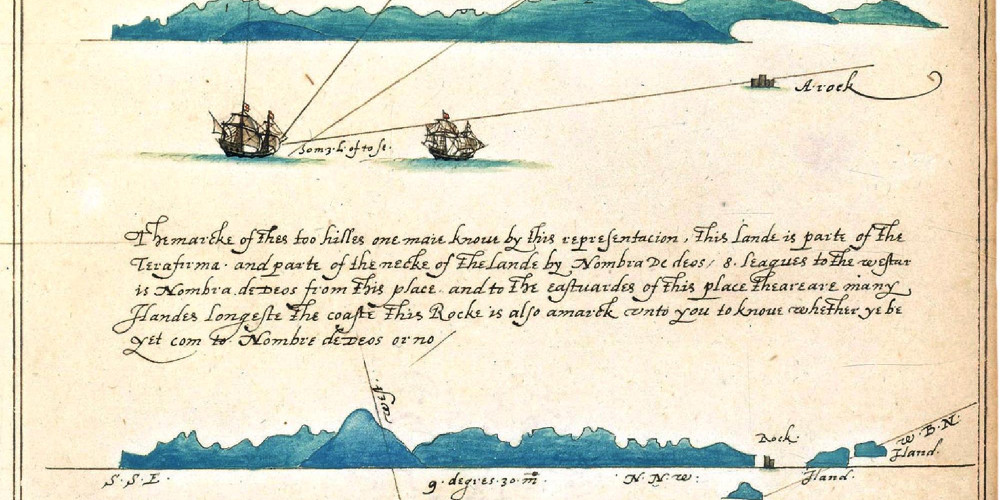 A rock
som 3. L. of to se.
The marcke of thes too hilles one maie knoue by this representacion, This Lande is parte of The
Terafirma. and parte of the necke of The Lande by Nombra De deos, 8. Leagues to the westar
is Nombra. de Deos from This place. and to The eastuardes of This place Theare are many
Ilandes Longeste The coaste This Rocke is also a marck vnto you to knoue whether ye be
yet com to Nombre de Deos or no
Rock.
w. B. N.
Iland.
S. S. E.
9. degres. 30. m
N. N. w:
Iland.